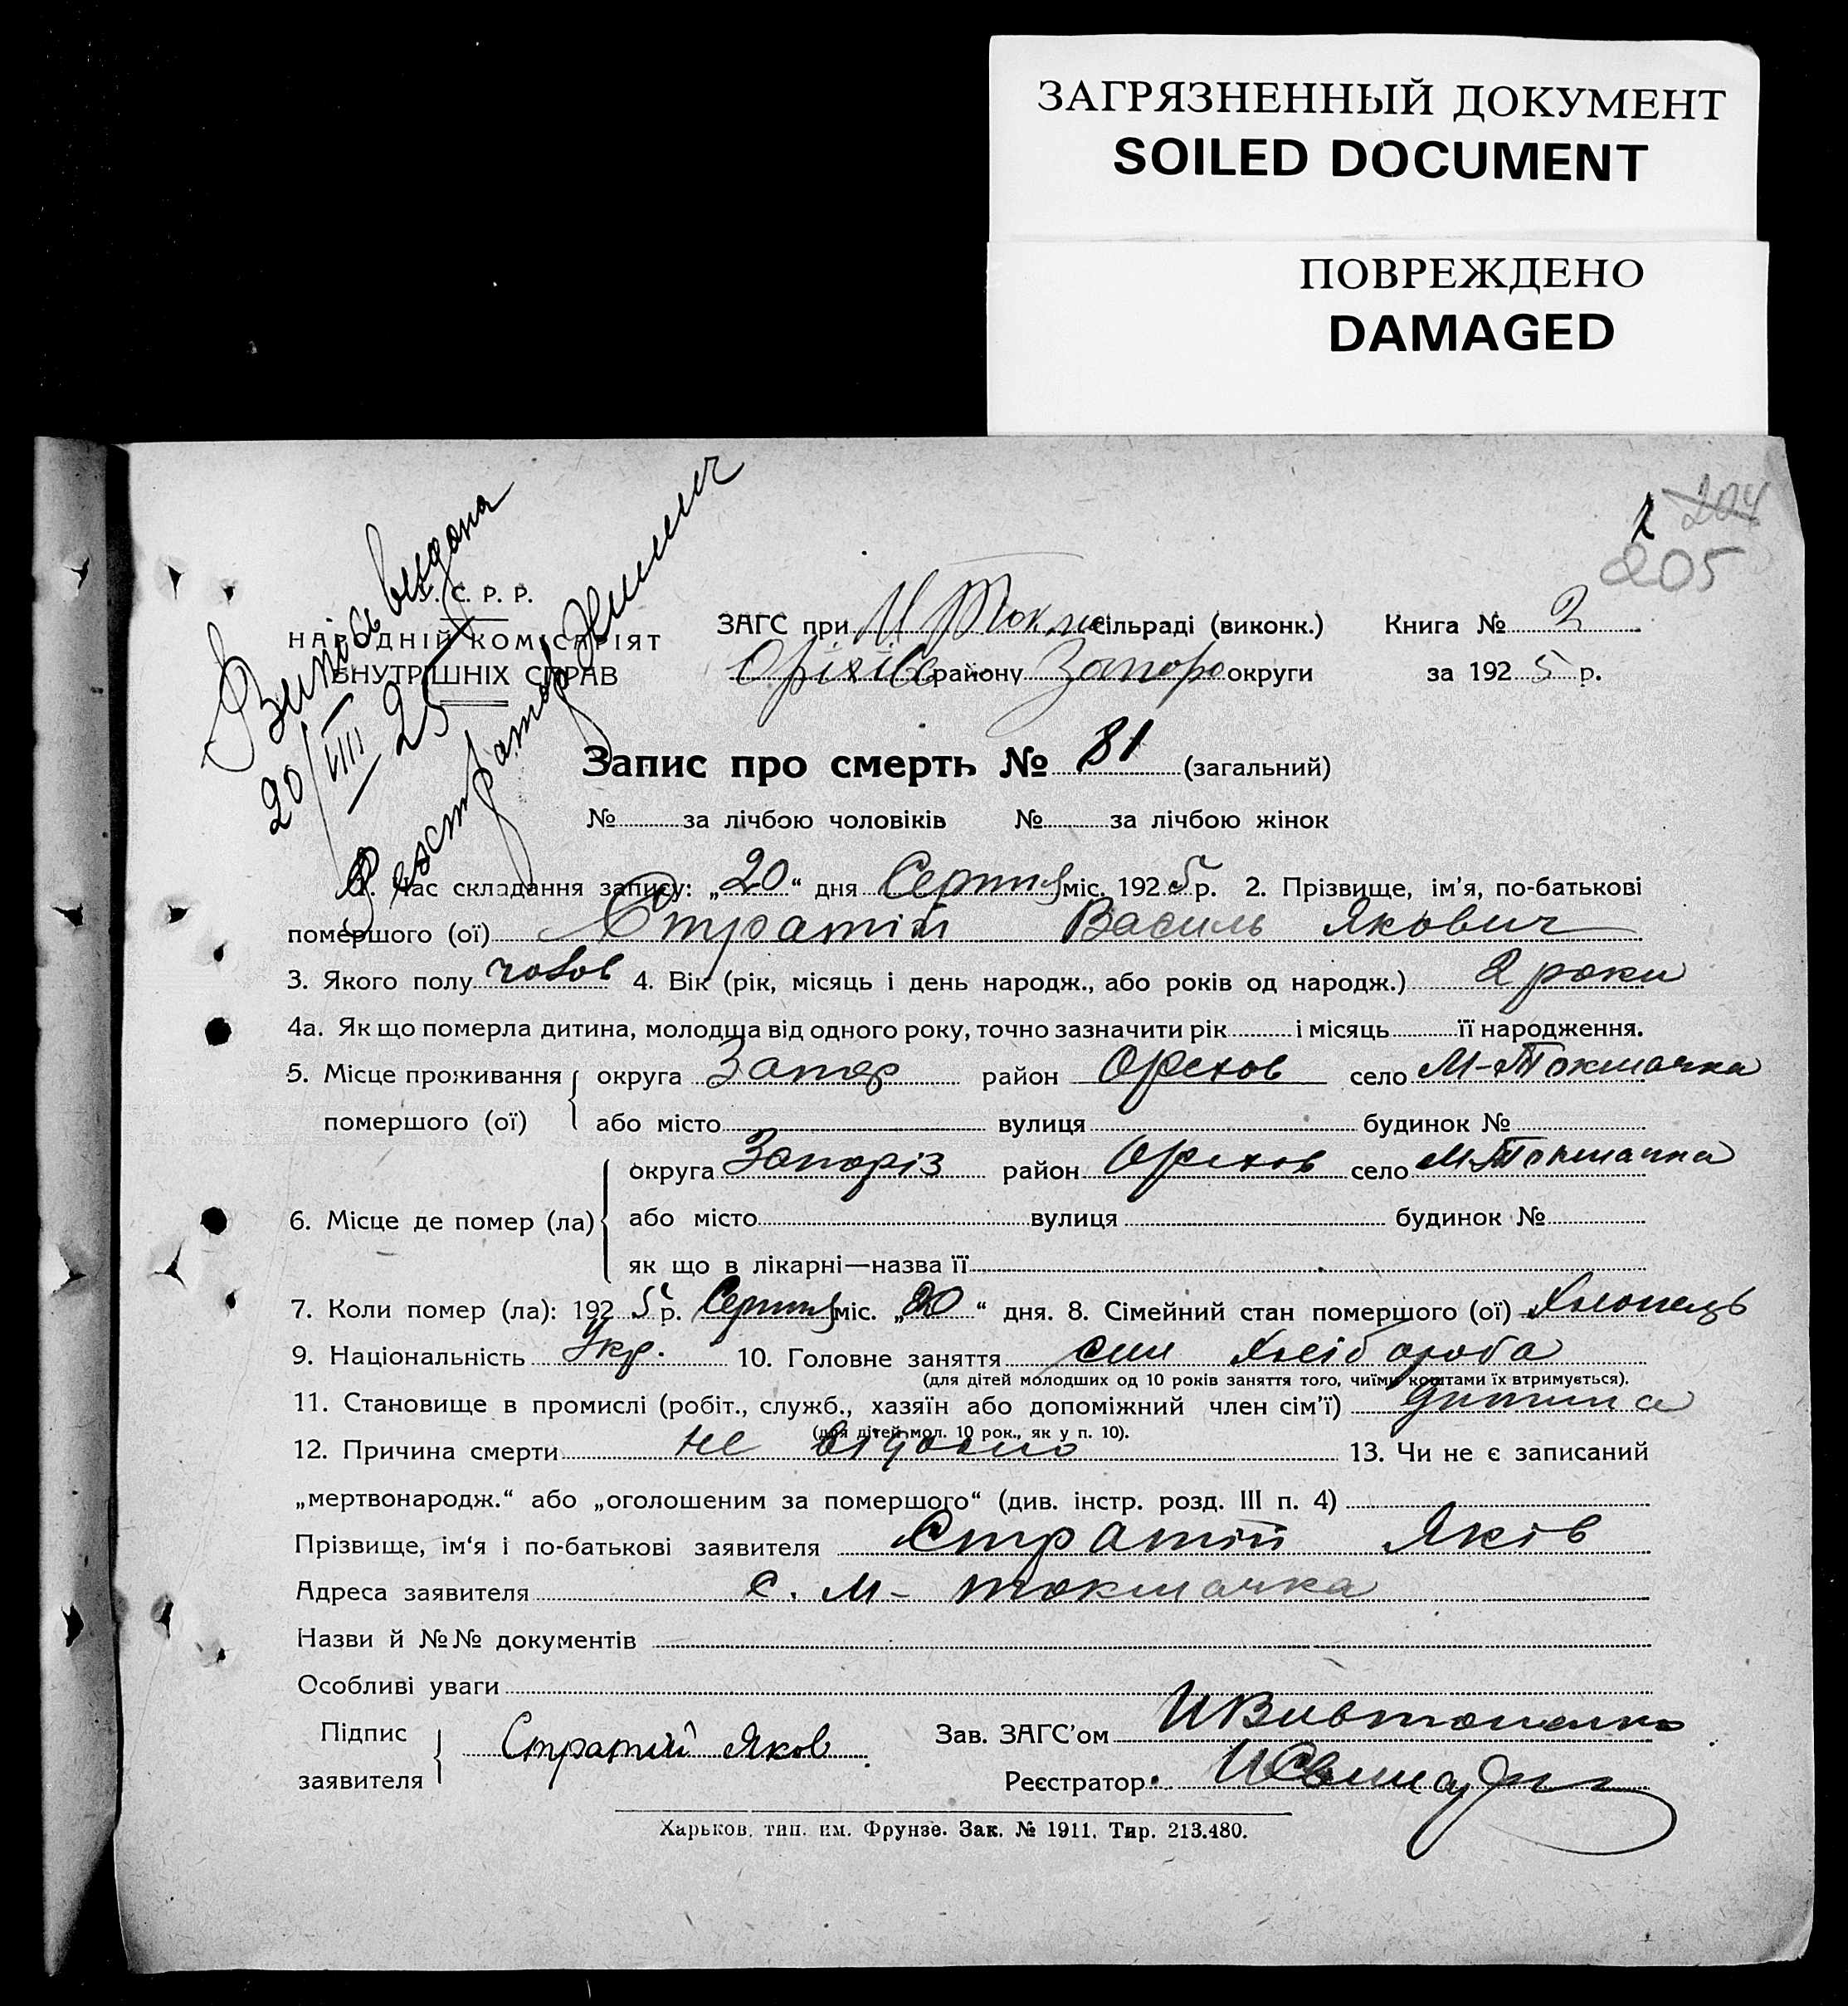 ЗАГРЯЗНЕННЫЙ ДОКУМЕНТ
SOILED DOCUMENT
ПОВРЕЖДЕНО
DAMAGED
204
205
Випис видана
20/VIII 25
Реєстратор
У. С. Р. Р.
НАРОДНІЙ КОМІСАРІЯТ
ВНУТРІШНІХ СПРАВ
ЗАГС при М Токма сільраді (виконк.) Книга № 2
Оріхівс району Запоро округи за 1925 р.
Запис про смерть № 81 (загальний)
№ за лічбою чоловіків № за лічбою жінок
1. Час складання запису: „20“ дня Серпня міс. 1925 р. 2. Прізвище, ім’я, по-батькові
помершого (ої) Стратій Василь Якович
3. Якого полу чолов 4. Вік (рік, місяць і день народж., або років од народж.) 2 роки
4а. Як що померла дитина, молодща від одного року, точно зазначити рік і місяць її народження.
5. Місце проживання округа Запор район Орехов село М-Токмачка
помершого (ої) або місто вулиця будинок №
округа Запоріз район Орехов село М-Токмачка
6. Місце де помер (ла) або місто вулиця будинок №
як що в лікарні—назва її
7. Коли помер (ла): 1925 р. Серпня міс. „20“ дня. 8. Сімейний стан помершого (ої) Хлопець
9. Національність Укр. 10. Головне заняття син Хлібороба
(для дітей молодших од 10 років заняття того, чиїми коштами їх втримується).
11. Становище в промислі (робіт., служб., хазяїн або допоміжний член сім’ї) дитина
(для дітей мол. 10 рок., як у п. 10).
12. Причина смерти не відомо 13. Чи не є записаний
„мертвонародж.“ або „оголошеним за помершого“ (див. інстр. розд. III п. 4)
Прізвище, ім‘я і по-батькові заявителя Стратій Яків
Адреса заявителя с. М-Токмачка
Назви й №№ документів
Особливі уваги
Підпис заявителя Стратій Яков Зав. ЗАГС’ом
Реєстратор
Харьков, тип. им. Фрунзе. Зак. № 1911. Тир. 213.480.